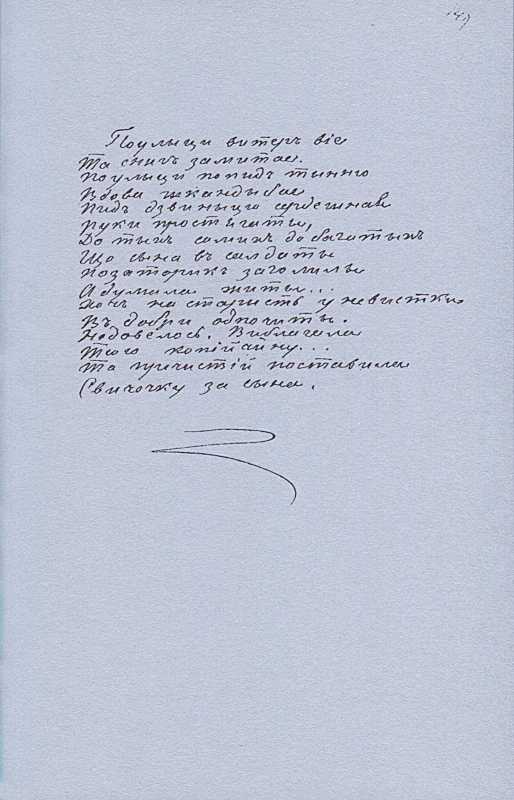 Поулыци витеръ віе
Та снигъ замитае.
Поулыци попидъ тынню
Вдова шкандыбае
Пидъ дзвиныцю сердешная
Руки простягаты,
До тыхъ самихъ до багатыхъ
Що сына въ салдаты
Позаторикъ заголилы
А думала житы...
Хочъ на старисть у невистки
Въ добри одпочиты.
Недовелось. Виблагала
Тую копійчину...
Та пречистій поставила
Свичочку за сына.